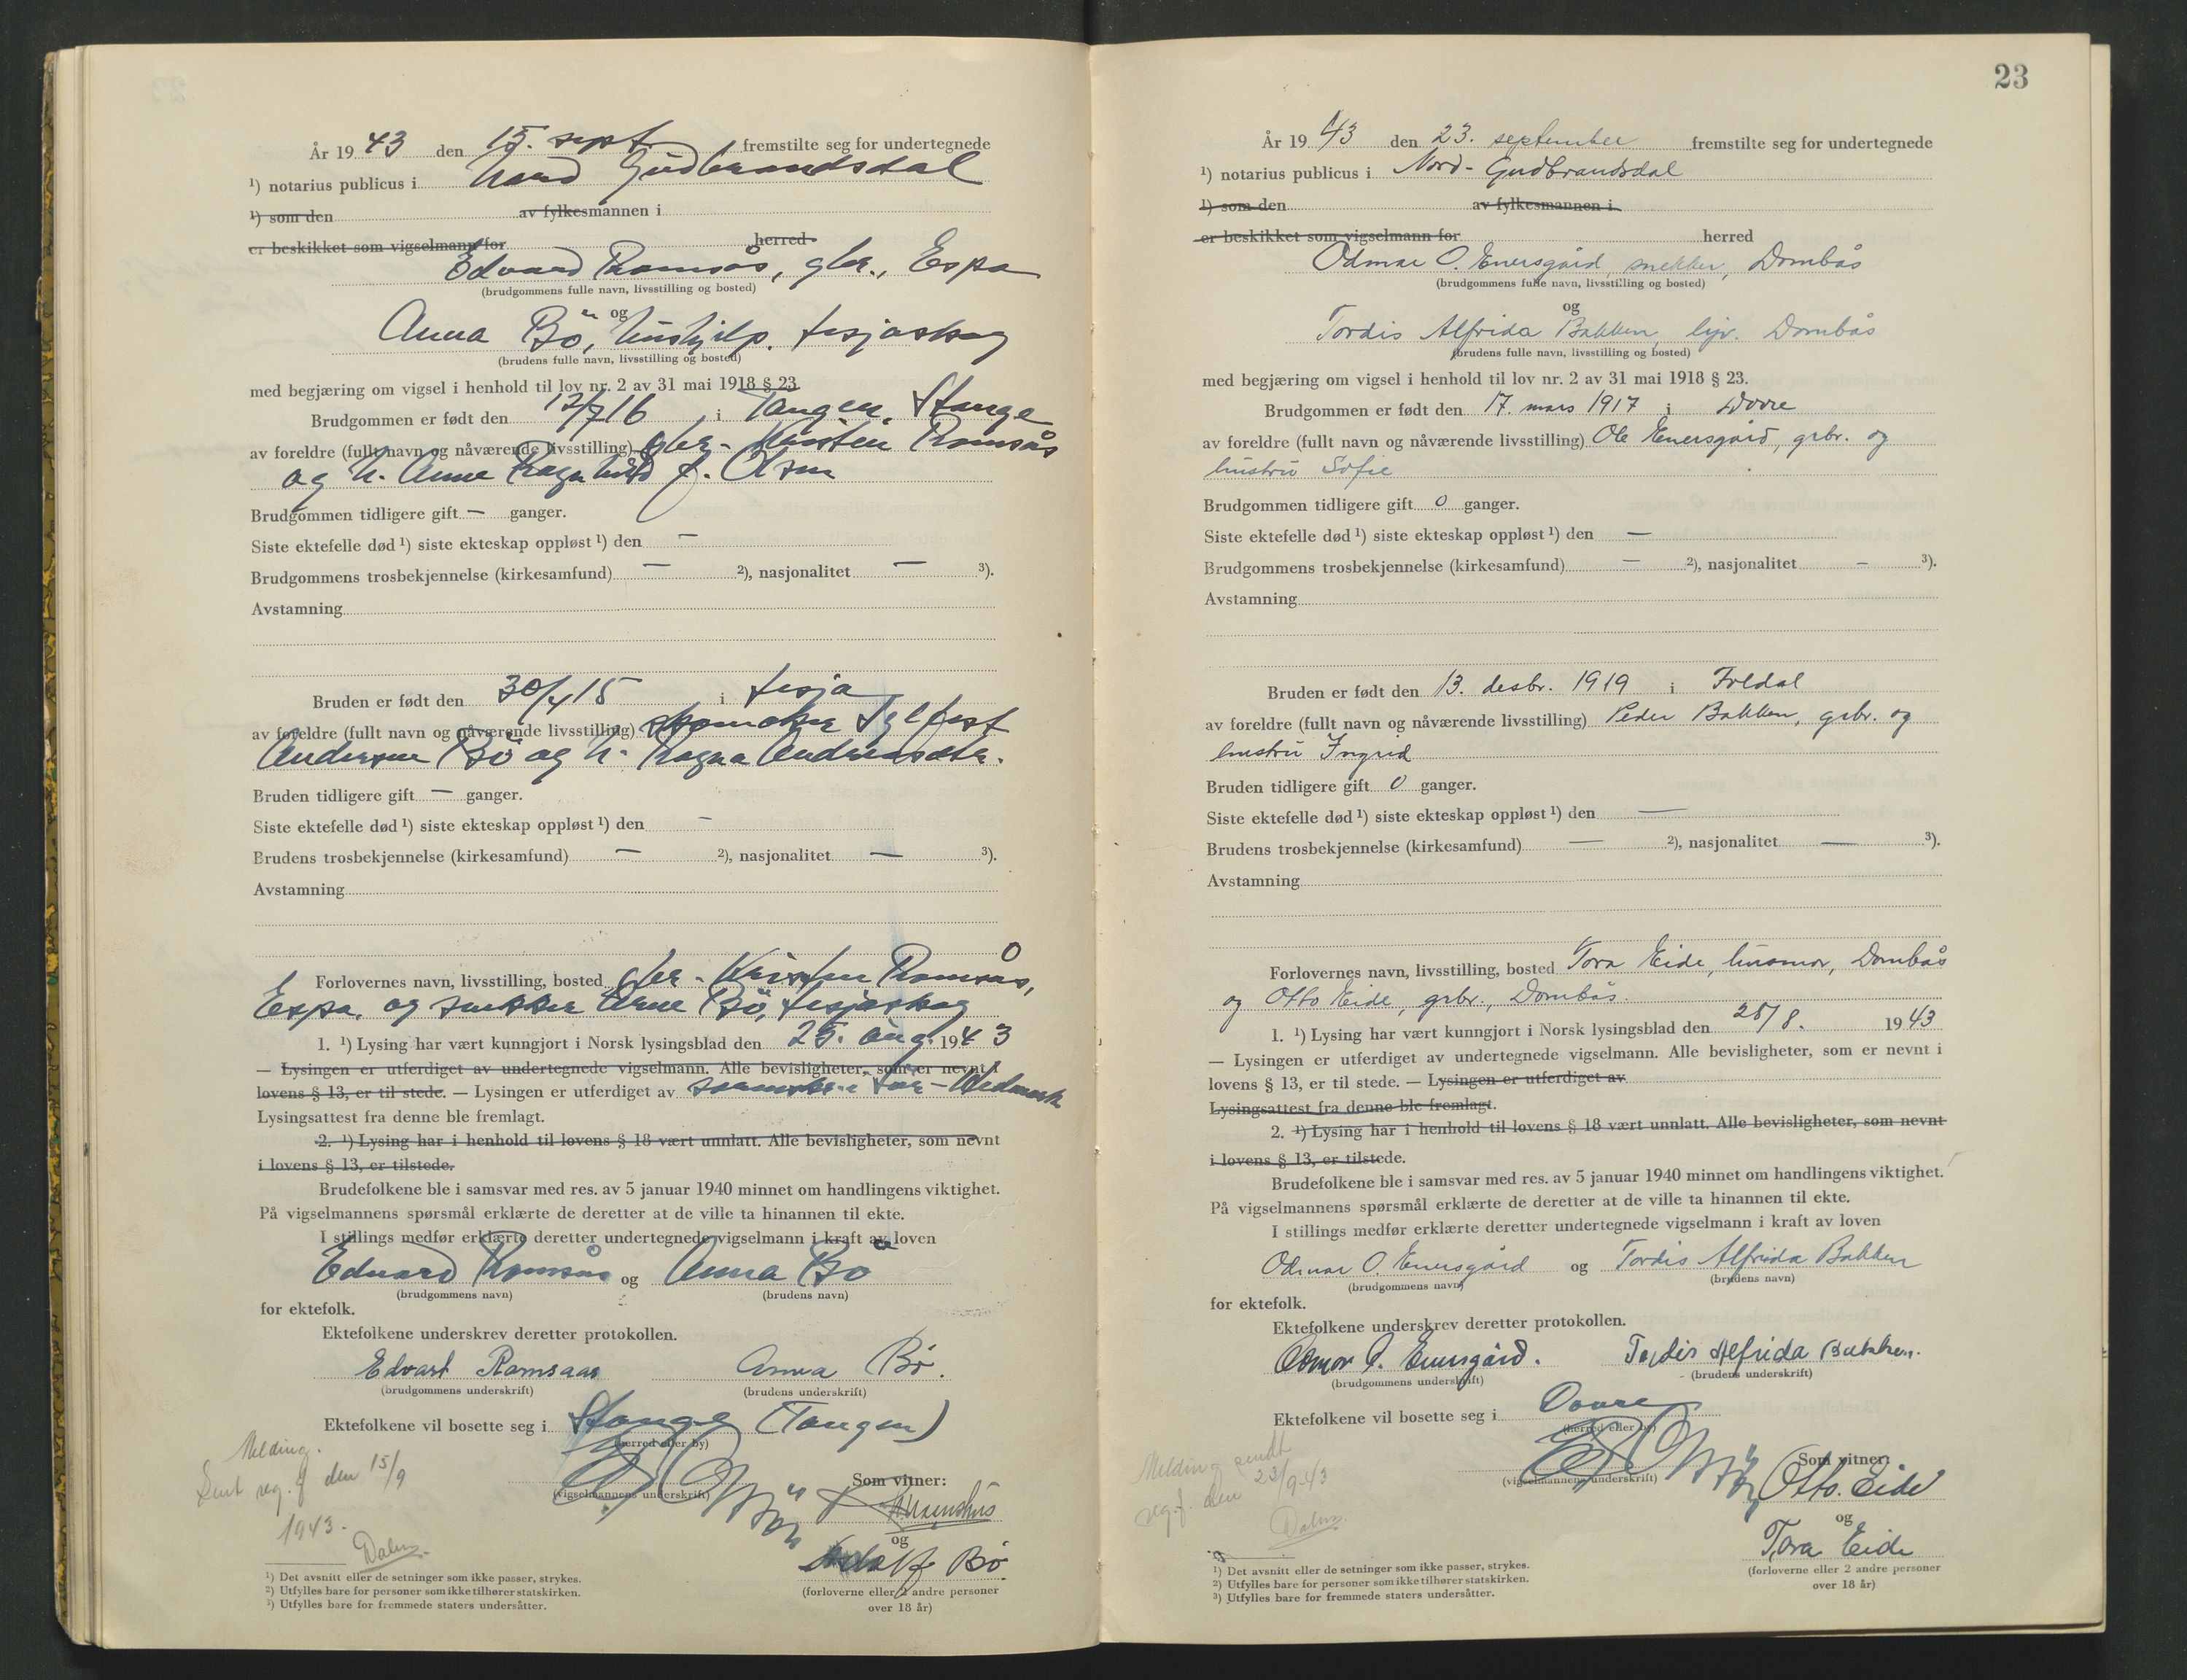 År 19 43 den 15. sept fremstilte seg for undertegnede
¹) notarius publicus i Nord Gudbrandsdal
¹) som den av fylkesmannen i
er beskikket som vigselmann for herred
Edvard Ramsås, gbr., Espa
(brudgommens fulle navn, livsstilling og bosted)
og
Anna Bö, hushjelp. Lesjaskog
(brudens fulle navn, livsstilling og bosted)
med begjæring om vigsel i henhold til lov nr. 2 av 31 mai 1918 § 23
Brudgommen er født den 12/7 16, i Tangen, Stange
av foreldre (fullt navn og nåværende livsstilling) gbr. Kristen Ramsås
og h. Anne Ragnhild f. Olsen
Brudgommen tidligere gift — ganger.
Siste ektefelle død ¹) siste ekteskap oppløst ¹) den —
Brudgommens trosbekjennelse (kirkesamfund) — ²), nasjonalitet — ³).
Avstamning
Bruden er født den 30/4 15 i Lesja
av foreldre (fullt navn og nåværende livsstilling) skomaker Sylfest
Andersen Bö og h. Ragna Andreasdtr.
Bruden tidligere gift — ganger.
Siste ektefelle død ¹) siste ekteskap oppløst ¹) den —
Brudens trosbekjennelse (kirkesamfund) — ²), nasjonalitet — ³).
Avstamning
Forlovernes navn, livsstilling, bosted gbr. Kristen Ramsås,
Espa. og snekker Arne Bö, Lesjaskog
1. ¹) Lysing har vært kunngjort i Norsk lysingsblad den 25. aug. 1943
— Lysingen er utferdiget av undertegnede vigselmann. Alle bevisligheter, som er nevnt i
lovens § 13, er til stede. — Lysingen er utferdiget av sorenskr. i Sør-Hedmark
Lysingsattest fra denne ble fremlagt.
2. ¹) Lysing har i henhold til lovens § 18 vært unnlatt. Alle bevisligheter, som nevnt
i lovens § 13, er tilstede.
Brudefolkene ble i samsvar med res. av 5 januar 1940 minnet om handlingens viktighet.
På vigselmannens spørsmål erklærte de deretter at de ville ta hinannen til ekte.
I stillings medfør erklærte deretter undertegnede vigselmann i kraft av loven
Edvard Ramsås og Anna Bö
(brudgommens navn) (brudens navn)
for ektefolk.
Ektefolkene underskrev deretter protokollen.
Edvart Ramsaas Anna Bö.
(brudgommens underskrift) (brudens underskrift)
Ektefolkene vil bosette seg i Stange (Tangen)
(herred eller by)
Melding.
Sent reg. f. den 15/9
1943.
Dalen.
Som vitner:
(vigselmannens underskrift)
og
Adolf Bö.
(forloverne eller 2 andre personer
over 18 år)
¹) Det avsnitt eller de setninger som ikke passer, strykes.
²) Utfylles bare for personer som ikke tilhører statskirken.
³) Utfylles bare for fremmede staters undersåtter.
23
År 19 43 den 23. september fremstilte seg for undertegnede
¹) notarius publicus i Nord-Gudbrandsdal
¹) som den av fylkesmannen i
er beskikket som vigselmann for herred
Odmar O. Enersgård, snekker, Dombås
(brudgommens fulle navn, livsstilling og bosted)
og
Tordis Alfrida Bakken, Dombås
(brudens fulle navn, livsstilling og bosted)
med begjæring om vigsel i henhold til lov nr. 2 av 31 mai 1918 § 23.
Brudgommen er født den 17. mars 1917 i Dovre
av foreldre (fullt navn og nåværende livsstilling) Ole Enersgård, grbr. og
hustru Sofie
Brudgommen tidligere gift 0 ganger.
Siste ektefelle død ¹) siste ekteskap oppløst ¹) den —
Brudgommens trosbekjennelse (kirkesamfund) — ²), nasjonalitet — ³).
Avstamning
Bruden er født den 13. desbr. 1919 i Foldal
av foreldre (fullt navn og nåværende livsstilling) Peder Bakken, grbr. og
hustru Ingrid
Bruden tidligere gift 0 ganger.
Siste ektefelle død ¹) siste ekteskap oppløst ¹) den —
Brudens trosbekjennelse (kirkesamfund) — ²), nasjonalitet — ³).
Avstamning
Forlovernes navn, livsstilling, bosted Tora Eide, husmor, Dombås
og Otto Eide, grbr., Dombås.
1. ¹) Lysing har vært kunngjort i Norsk lysingsblad den 28/8. 1943
— Lysingen er utferdiget av undertegnede vigselmann. Alle bevisligheter, som er nevnt i
lovens § 13, er til stede. — Lysingen er utferdiget av
Lysingsattest fra denne ble fremlagt.
2. ¹) Lysing har i henhold til lovens § 18 vært unnlatt. Alle bevisligheter, som nevnt
i lovens § 13, er tilstede.
Brudefolkene ble i samsvar med res. av 5 januar 1940 minnet om handlingens viktighet.
På vigselmannens spørsmål erklærte de deretter at de ville ta hinannen til ekte.
I stillings medfør erklærte deretter undertegnede vigselmann i kraft av loven
Odmar O. Enersgård og Tordis Alfrida Bakken
(brudgommens navn) (brudens navn)
for ektefolk.
Ektefolkene underskrev deretter protokollen.
Odmar O. Enersgård. Tordis Alfrida Bakken.
(brudgommens underskrift) (brudens underskrift)
Ektefolkene vil bosette seg i Dovre
(herred eller by)
Melding sendt
reg.f. den 23/9-43
Dalen
Som vitner:
(vigselmannens underskrift) Otto. Eide
og
Tora Eide
(forloverne eller 2 andre personer
over 18 år)
¹) Det avsnitt eller de setninger som ikke passer, strykes.
²) Utfylles bare for personer som ikke tilhører statskirken.
³) Utfylles bare for fremmede staters undersåtter.